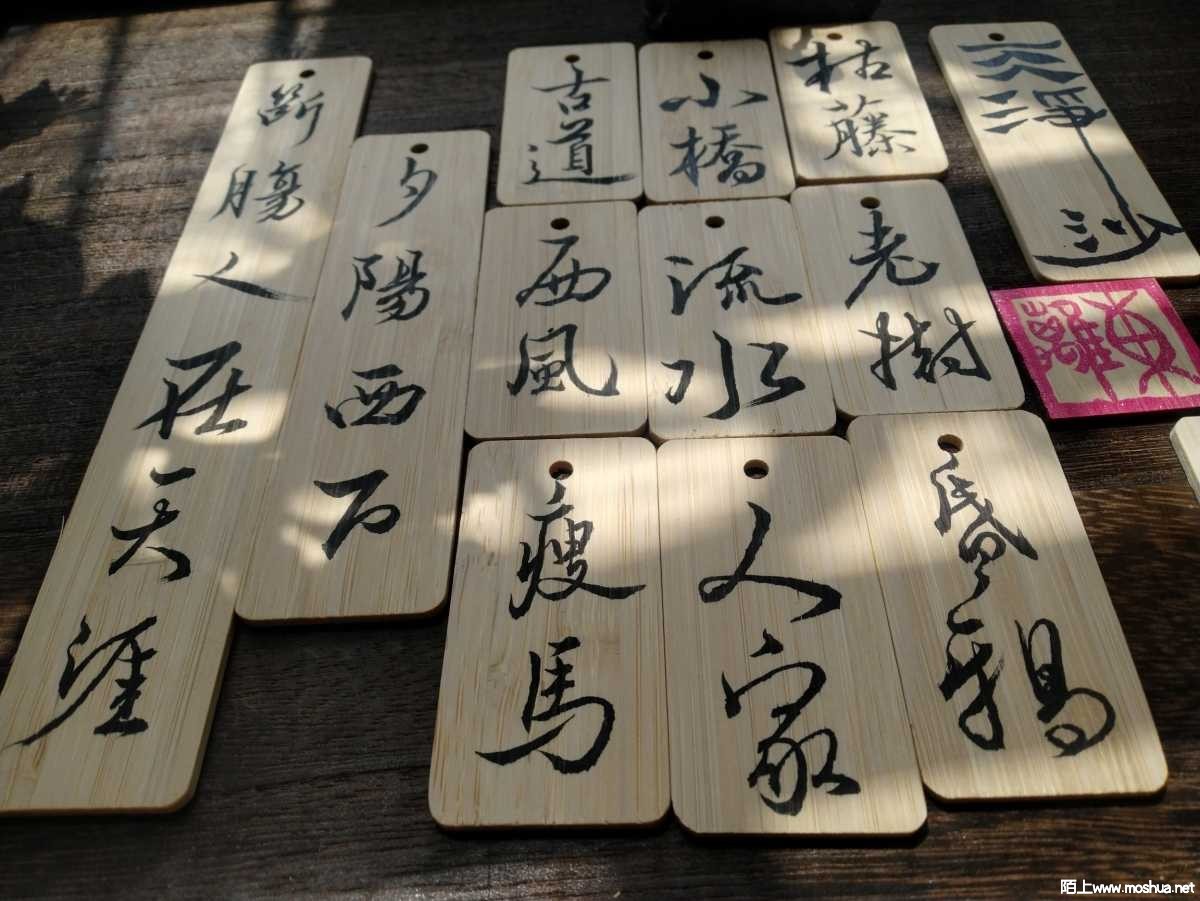 天淨沙
枯藤
老樹
昏鴉
小橋
流水
人家
古道
西風
瘦馬
夕陽西下
斷腸人在天涯
陌上www.moshua.net